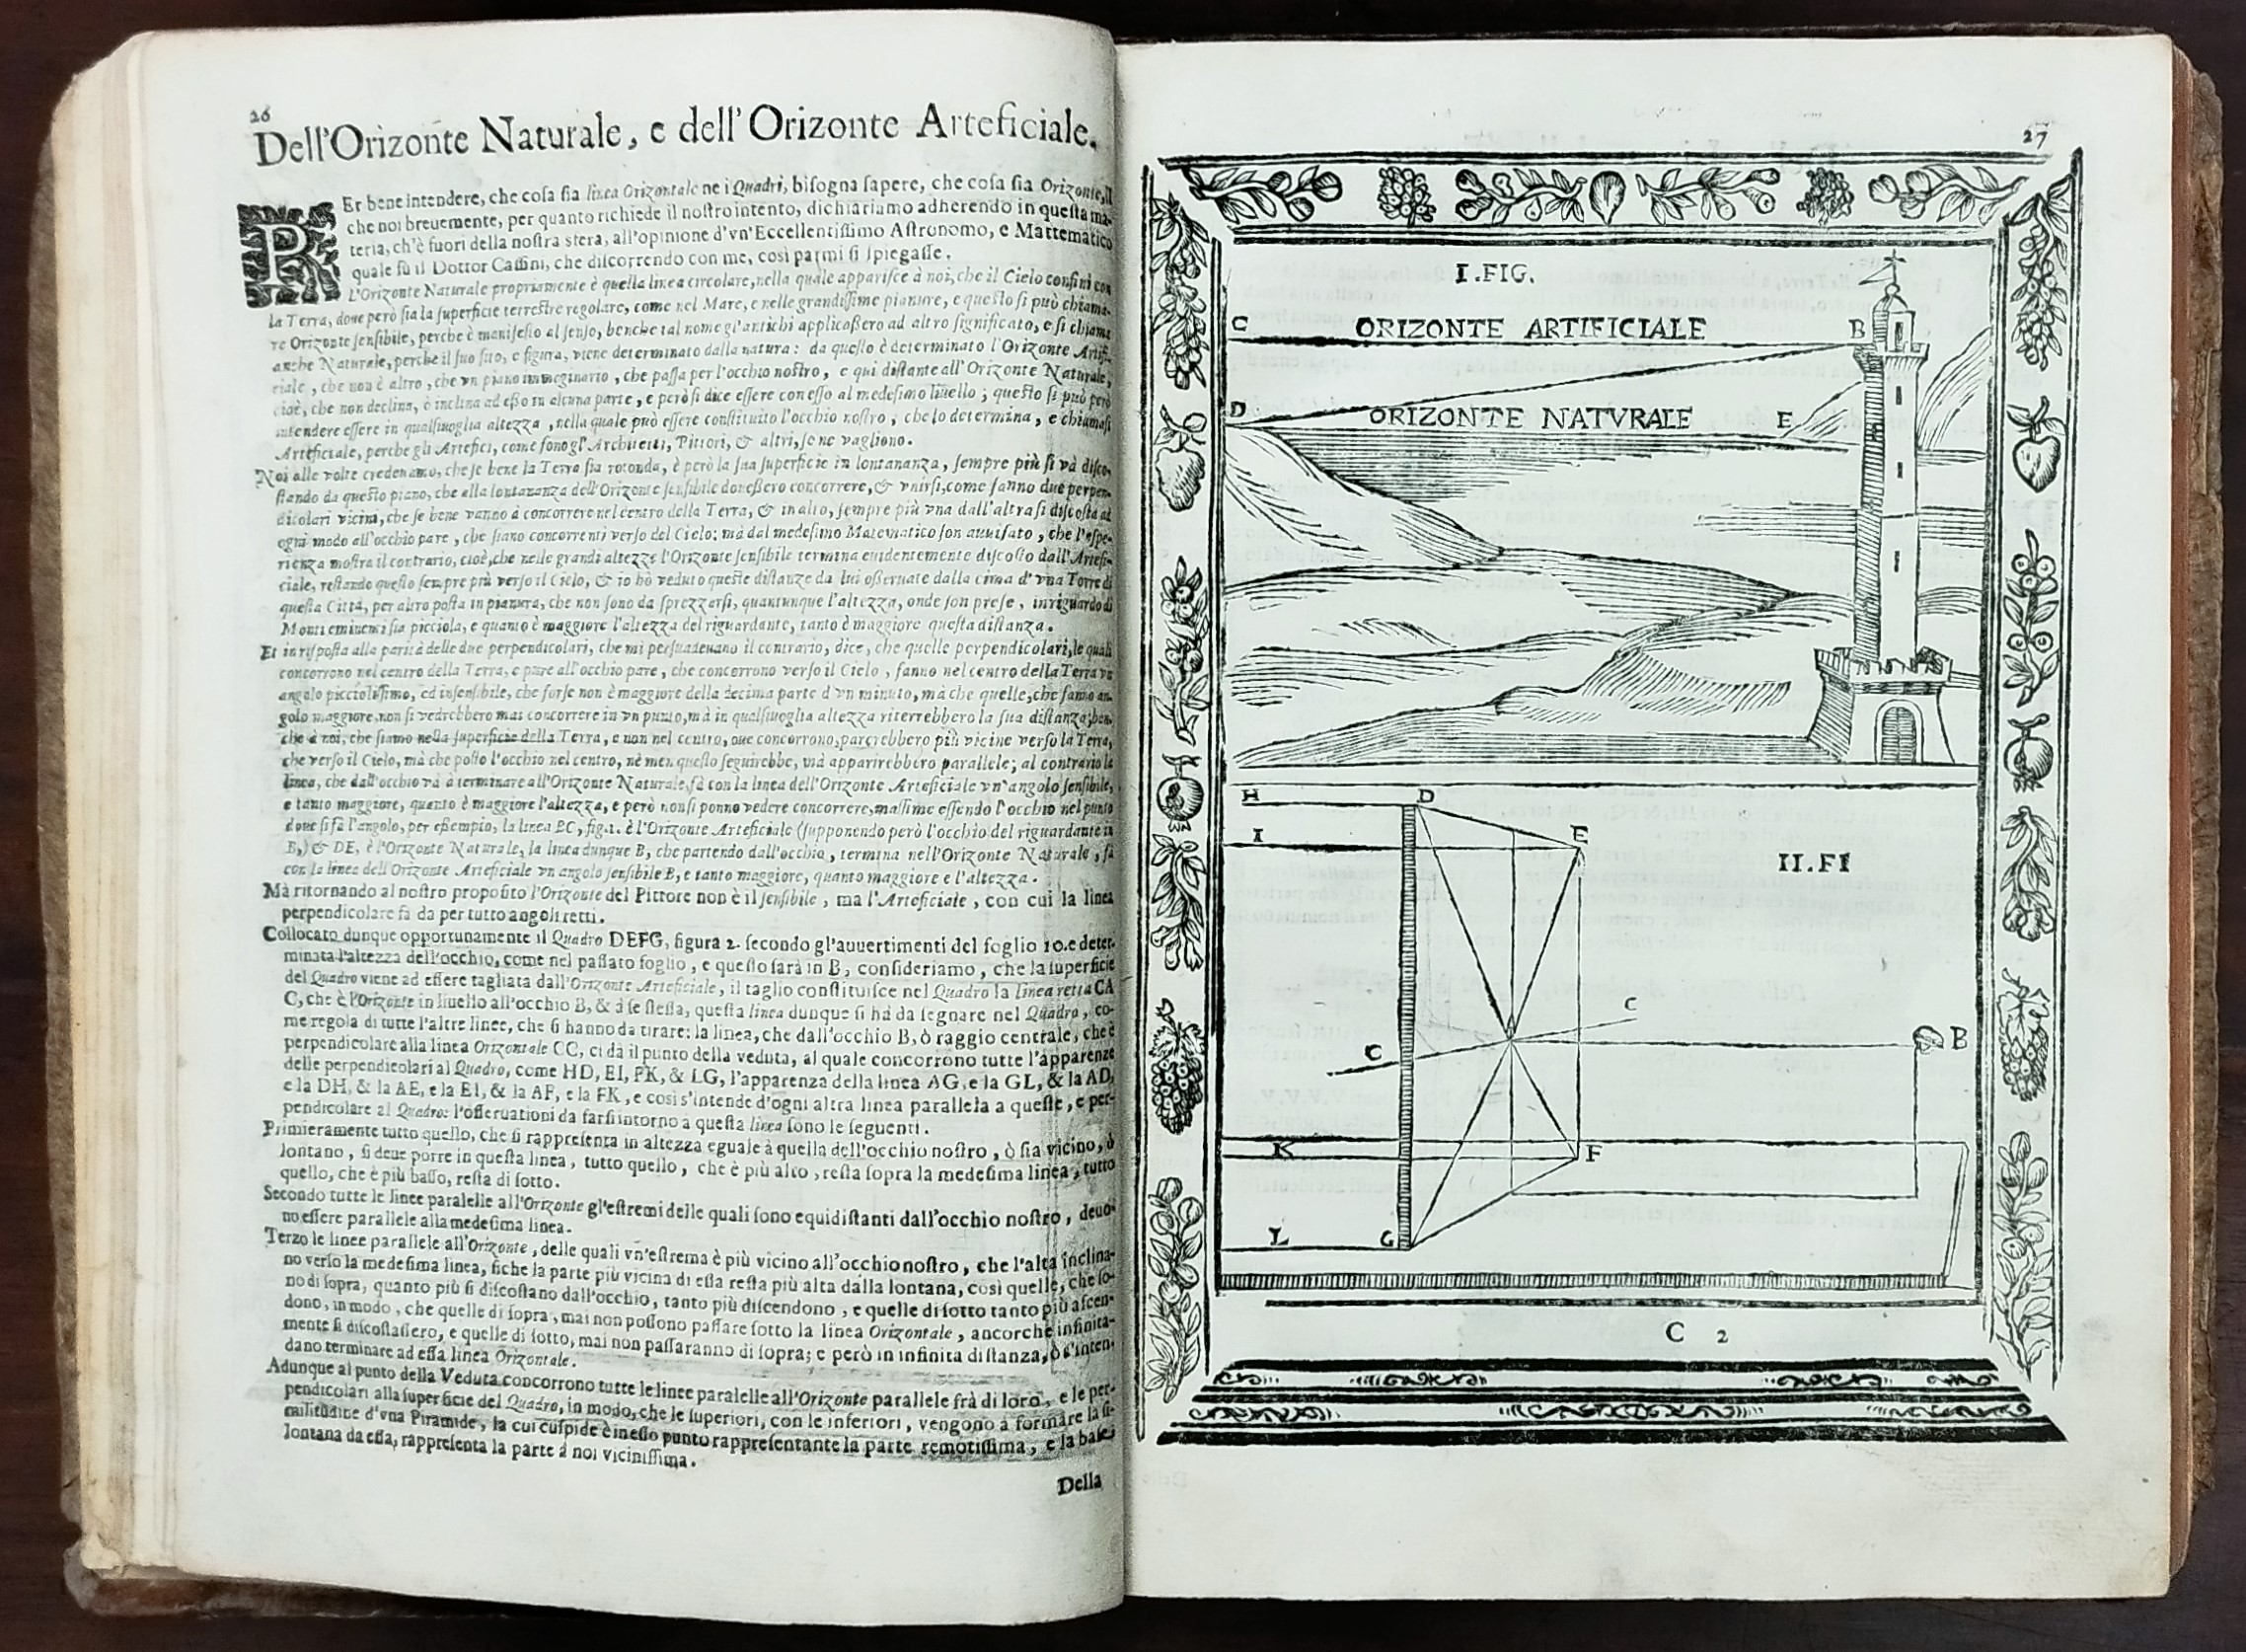 26
Dell'Orizonte Naturale, e dell'Orizonte Arteficiale.
PEr bene intendere, che coſa ſia linea Orizontale ne i Quadri, biſogna ſapere, che coſa ſia Orizonte, Il
che noi breuemente, per quanto richiede il noſtro intento, dichiariamo adherendo in queſta ma-
teria, ch'è fuori della noſtra sfera, all'opinione d'vn'Eccellentiſſimo Aſtronomo, e Mattematico
quale fù il Dottor Caſſini, che diſcorrendo con me, così parmi ſi ſpiegaſſe.
l'Orizonte Naturale propriamente è quella linea circolare, nella quale apparisce à noi, che il Cielo confini con
la Terra, doue però ſia la ſuperficie terreſtre regolare, come nel Mare, e nelle grandiſſime pianure, e queſto ſi può chiama-
re Orizonte ſenſibile, perche è manifeſto al ſenſo, benche tal nome gl'antichi applicaſſero ad altro ſignificato, e ſi chiama
anche Naturale, perche il ſuo ſito, e figura, viene determinato dalla natura: da queſto è determinato l'Orizonte Artifi-
ciale, che non è altro, che vn piano immaginario, che paſſa per l'occhio noſtro, e qui diſtante all'Orizonte Naturale,
cioè, che non declina, ò inclina ad eſſo in alcuna parte, e però ſi dice eſſere con eſſo al medeſimo liuello; queſto ſi può però
intendere eſſere in qualſiuoglia altezza, nella quale può eſſere conſtituito l'occhio noſtro, che lo determina, e chiamaſi
Arteficiale, perche gli Artefici, come ſono gl'Architetti, Pittori, & altri, ſe ne vagliono.
Noi alle volte credeuamo, che ſe bene la Terra ſia rotonda, è però la ſua ſuperficie in lontananza, ſempre più ſi và diſco-
ſtando da queſto piano, che alla lontananza dell'Orizonte ſenſibile doueſſero concorrere, & vnirſi, come fanno due perpen-
dicolari vicini, che ſe bene vanno à concorrere nel centro della Terra, & in alto, ſempre più vna dall'altra ſi diſcoſta ad
ogni modo all'occhio pare, che ſiano concorrenti verſo del Cielo; mà dal medeſimo Matematico ſon auuiſato, che l'eſpe-
rienza moſtra il contrario, cioè, che nelle grandi altezze l'Orizonte ſenſibile termina euidentemente diſcoſto dall'Artefi-
ciale, reſtando queſto ſempre più verſo il Cielo, & io hò veduto queſte diſtanze da lui oſſeruate dalla cima d'vna Torre di
queſta Città, per altro poſta in pianura, che non ſono da ſprezzarſi, quantunque l'altezza, onde ſon preſe, in riguardo di
Monti eminenti ſia picciola, e quanto è maggiore l'altezza del riguardante, tanto è maggiore queſta diſtanza.
Et in riſpoſta alla parità delle due perpendicolari, che mi perſuadeuano il contrario, dice, che quelle perpendicolari, le quali
concorrono nel centro della Terra, e pare all'occhio pare, che concorrono verſo il Cielo, fanno nel centro della Terra vn
angolo piccioliſſimo, ed inſenſibile, che forſe non è maggiore della decima parte d'vn minuto, mà che quelle, che fanno an-
golo maggiore, non ſi vedrebbero mai concorrere in vn punto, mà in qualſiuoglia altezza riterrebbero la ſua diſtanza; ben-
che à noi, che ſiamo nella ſuperficie della Terra, e non nel centro, oue concorrono, parerebbero più vicine verſo la Terra,
che verſo il Cielo, mà che poſto l'occhio nel centro, nè men queſto ſeguirebbe, mà apparirebbero parallele; al contrario la
linea, che dall'occhio và à terminare all'Orizonte Naturale, fà con la linea dell'Orizonte Arteficiale vn'angolo ſenſibile,
e tanto maggiore, quanto è maggiore l'altezza, e però non ſi ponno vedere concorrere, maſſime eſſendo l'occhio nel punto
doue ſi fà l'angolo, per eſempio, la linea BC, fig.1. è l'Orizonte Arteficiale (ſupponendo però l'occhio del riguardante in
B,) & DE, è l'Orizonte Naturale, la linea dunque B, che partendo dall'occhio, termina nell'Orizonte Naturale, fà
con la linea dell'Orizonte Arteficiale vn angolo ſenſibile B, e tanto maggiore, quanto maggiore e l'altezza.
Mà ritornando al noſtro propoſito l'Orizonte del Pittore non è il ſenſibile, ma l'Arteficiale, con cui la linea
perpendicolare fà da per tutto angoli retti.
Collocato dunque opportunamente il Quadro DEFG, figura 2. ſecondo gl'auuertimenti del foglio 10. e deter-
minata l'altezza dell'occhio, come nel paſſato foglio, e queſto ſarà in B, conſideriamo, che la ſuperficie
del Quadro viene ad eſſere tagliata dall'Orizonte Arteficiale, il taglio conſtituiſce nel Quadro la linea retta CA
C, che è l'Orizonte in liuello all'occhio B, & à ſe ſteſſa, queſta linea dunque ſi hà da ſegnare nel Quadro, co-
me regola di tutte l'altre linee, che ſi hanno da tirare: la linea, che dall'occhio B, ò raggio centrale, che è
perpendicolare alla linea Orizontale CC, ci dà il punto della veduta, al quale concorrono tutte l'apparenze
delle perpendicolari al Quadro, come HD, EI, FK, & LG, l'apparenza della linea AG, e la GL, & la AD,
e la DH, & la AE, e la EI, & la AF, e la FK, e così s'intende d'ogni altra linea parallela a queſte, e per-
pendicolare al Quadro: l'oſſeruationi da farſi intorno a queſta linea ſono le ſeguenti.
Primieramente tutto quello, che ſi rappreſenta in altezza eguale à quella dell'occhio noſtro, ò ſia vicino, ò
lontano, ſi deue porre in queſta linea, tutto quello, che è più alto, reſta ſopra la medeſima linea, tutto
quello, che è più baſſo, reſta di ſotto.
Secondo tutte le linee paralelle all'Orizonte gl'eſtremi delle quali ſono equidiſtanti dall'occhio noſtro, deuo-
no eſſere parallele alla medeſima linea.
Terzo le linee parallele all'Orizonte, delle quali vn'eſtrema è più vicino all'occhio noſtro, che l'alta inclina-
no verſo la medeſima linea, ſiche la parte più vicina di eſſa reſta più alta dalla lontana, così quelle, che ſo-
no di ſopra, quanto più ſi diſcoſtano dall'occhio, tanto più diſcendono, e quelle di ſotto tanto più aſcen-
dono, in modo, che quelle di ſopra, mai non poſſono paſſare ſotto la linea Orizontale, ancorche infinita-
mente ſi diſcoſtaſſero, e quelle di ſotto, mai non paſſaranno di ſopra; e però in infinita diſtanza, ò s'inten-
dano terminare ad eſſa linea Orizontale.
Adunque al punto della Veduta concorrono tutte le linee paralelle all'Orizonte parallele frà di loro, e le per-
pendicolari alla ſuperficie del Quadro, in modo, che le ſuperiori, con le inferiori, vengono à formare la ſi-
militudine d'vna Piramide, la cui cuſpide è in eſſo punto rappreſentante la parte remotiſſima, e la baſe
lontana da eſſa, rappreſenta la parte à noi viciniſſima.
Della
27
I.FIG.
C ORIZONTE ARTIFICIALE B
D ORIZONTE NATVRALE E
H D
I E
II.FI
C
C B
K F
L G
C 2